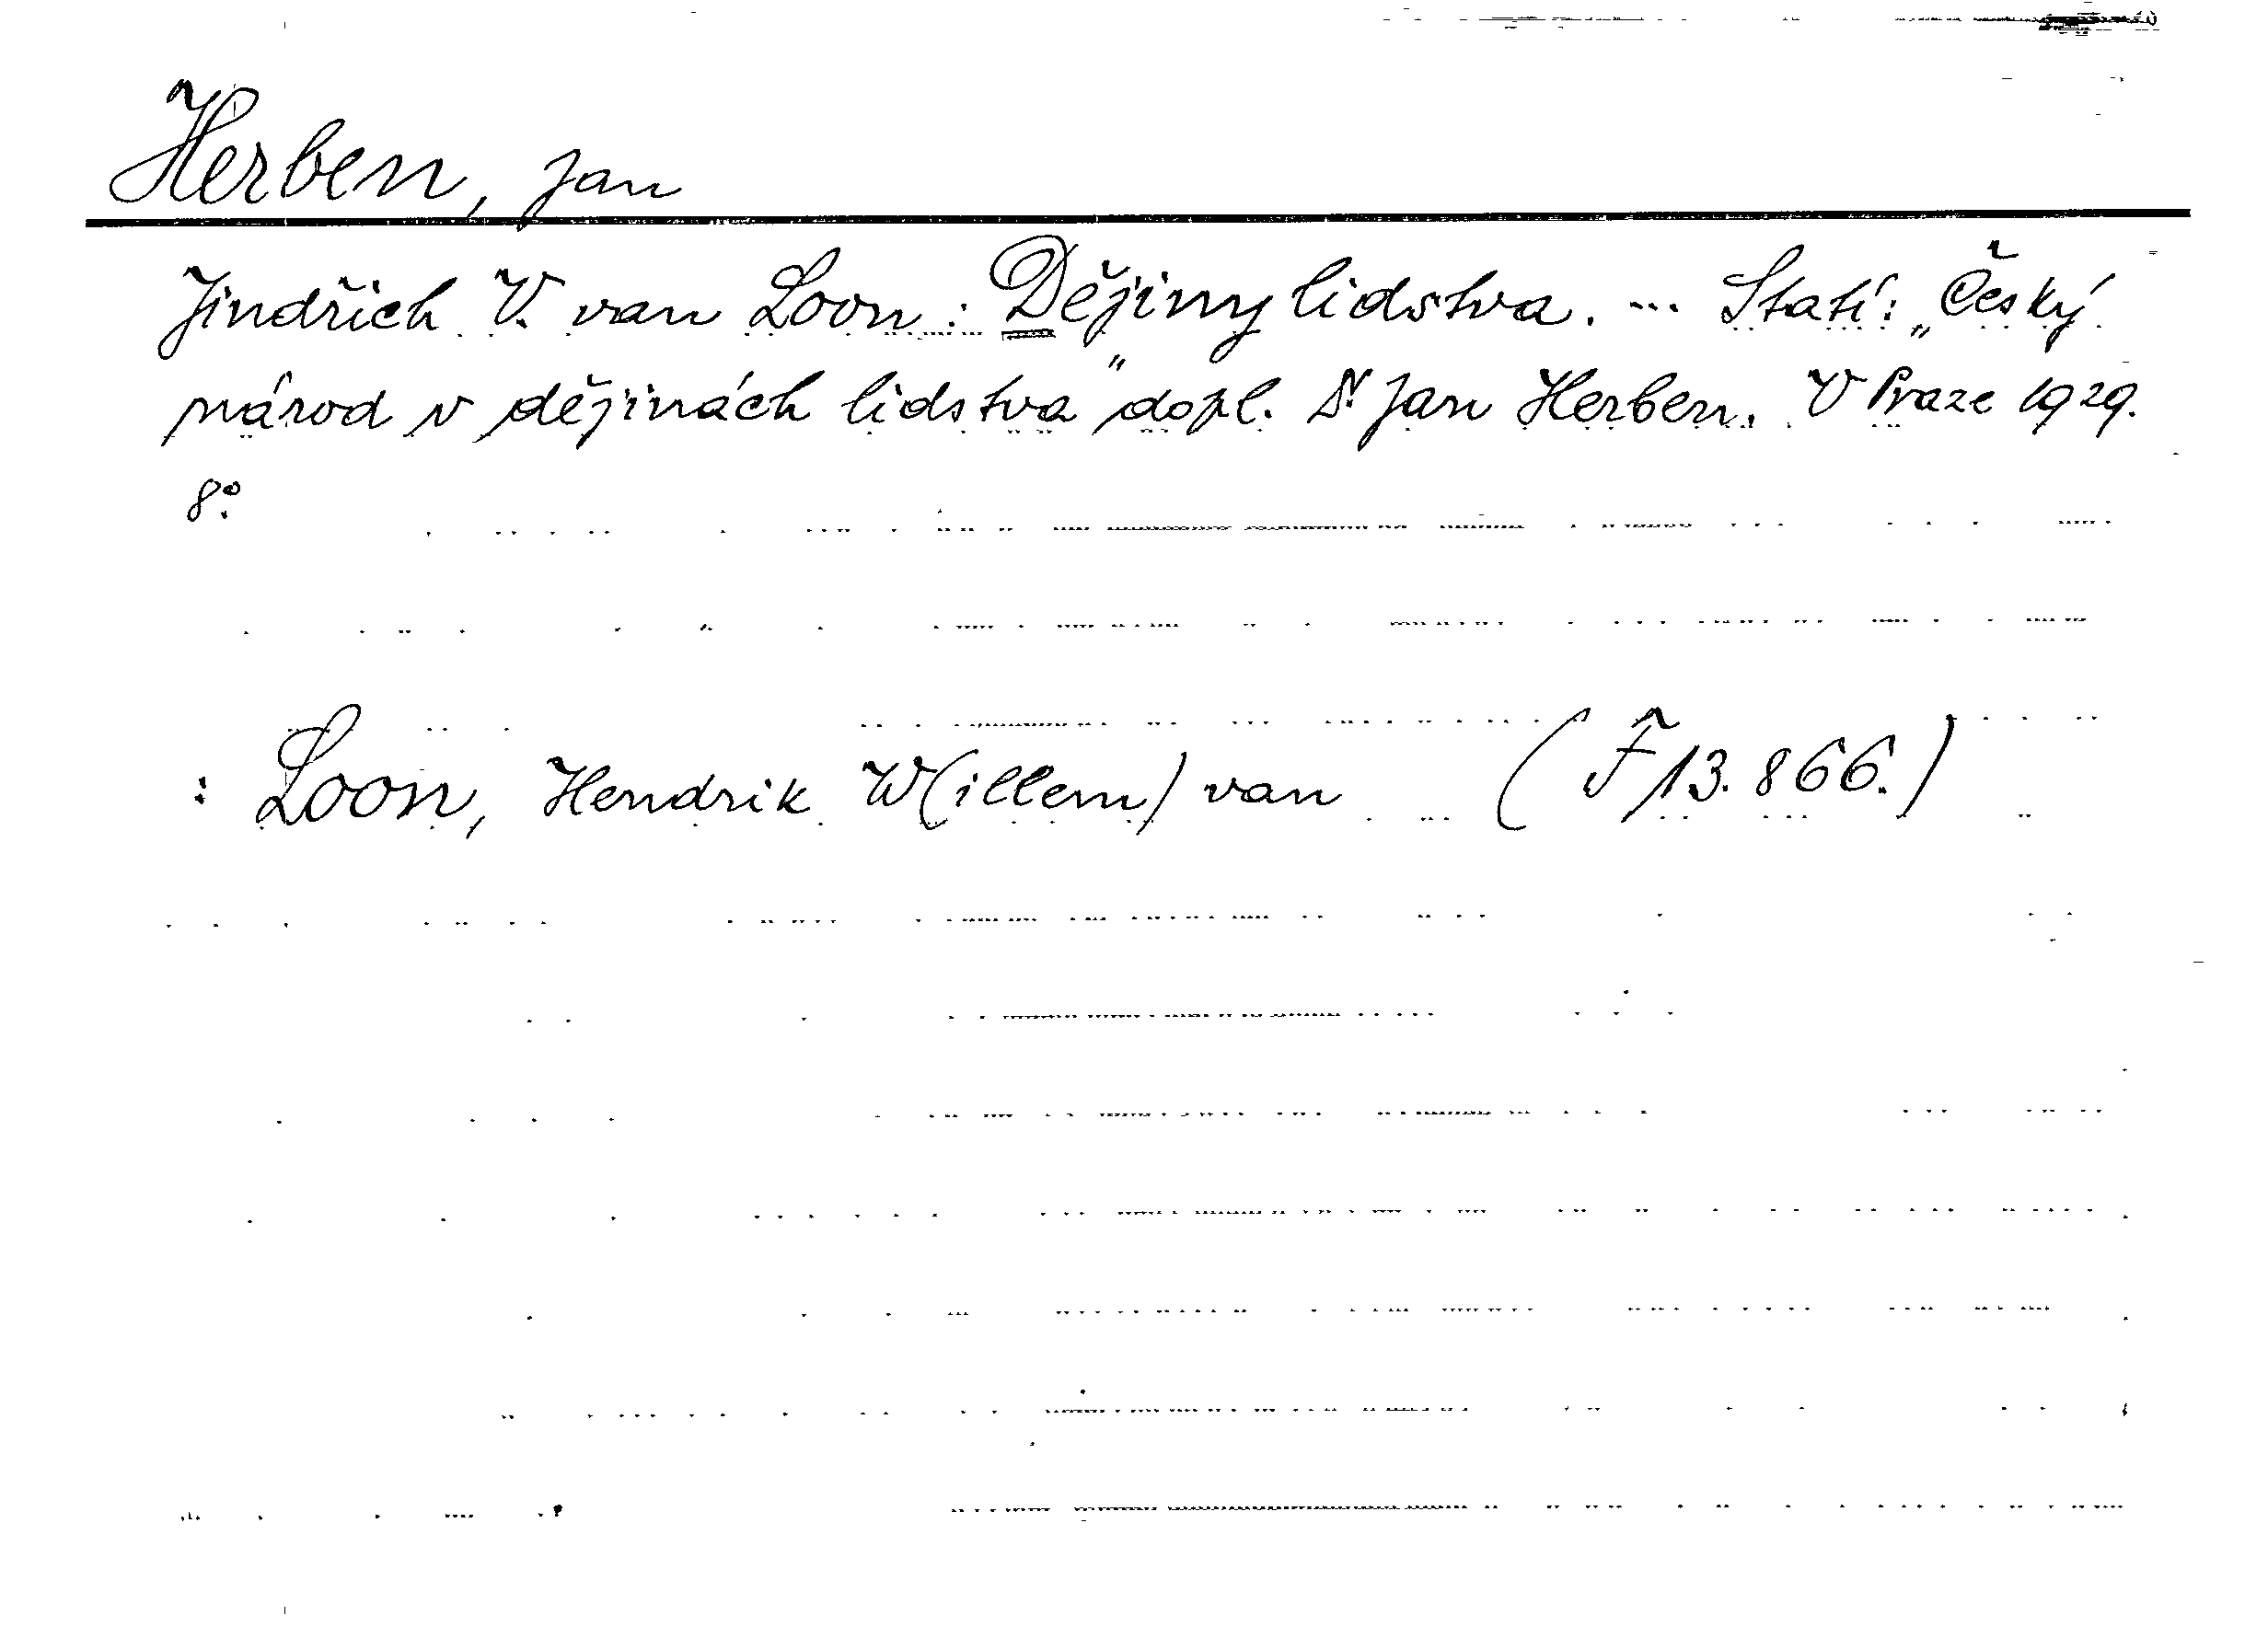 Herben, Jan
Jindřich V. van Loon: Dějiny lidstva. ... Statí: „Český
národ v dějinách lidstva" dopl. Dr Jan Herben. V Praze 1929.
8°.
: Loon, Hendrik W(illem) van (F 13.866.)